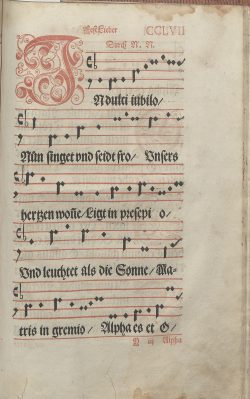 Meßlieder CCLVII
Durch N. N.
IN dulci iubilo/
Nun singet vnd seidt fro/ Vnsers
hertzen woñe/ Ligt in presepi o/
Vnd leuchtet als die Sonne/ Ma-
tris in gremio/ Alpha es et O/
iij Alpha